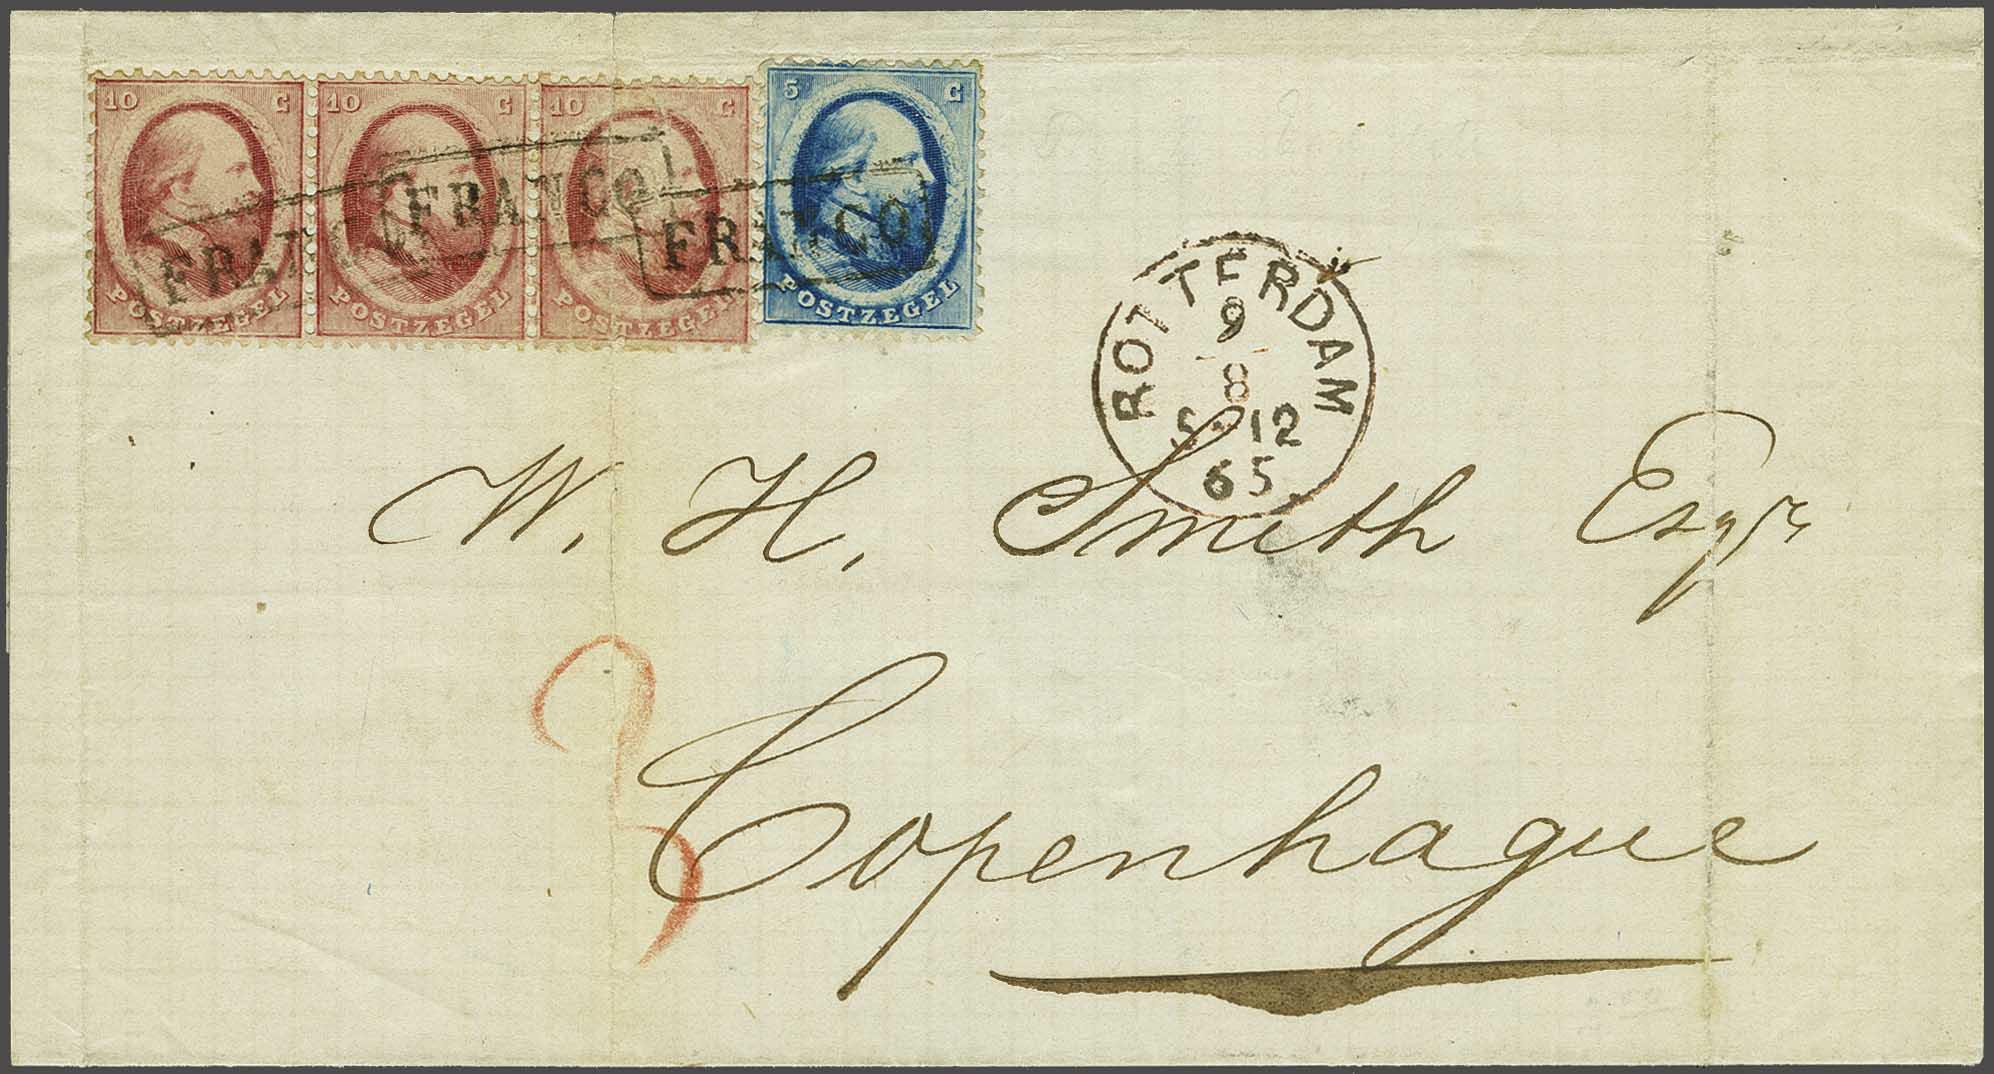 10 C 10 C 10 C 5 C
FRANCO FRANCO FRANCO
POSTZEGEL POSTZEGEL POSTZEGEL POSTZEGEL
ROTTERDAM
9
8
5-12
65
W. H. Smith Esqr
3
Copenhague